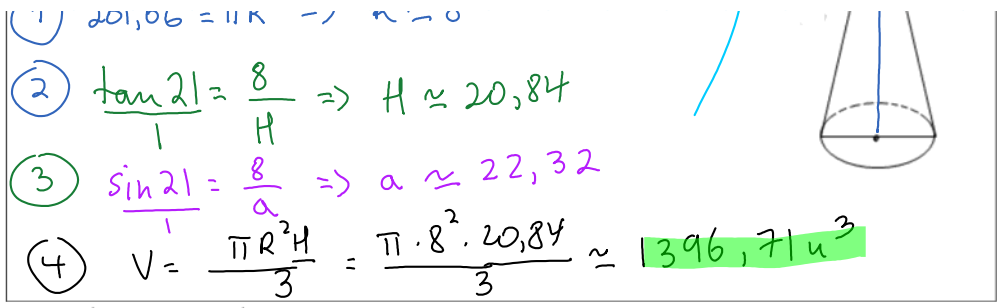 1 201,06 = πR² => R ≃ 8
2 tan21/1 = 8/H => H ≃ 20,84
3 sin21/1 = 8/a => a ≃ 22,32
4 V = πR²H/3 = π·8²·20,84/3 ≃ 1396,71u³